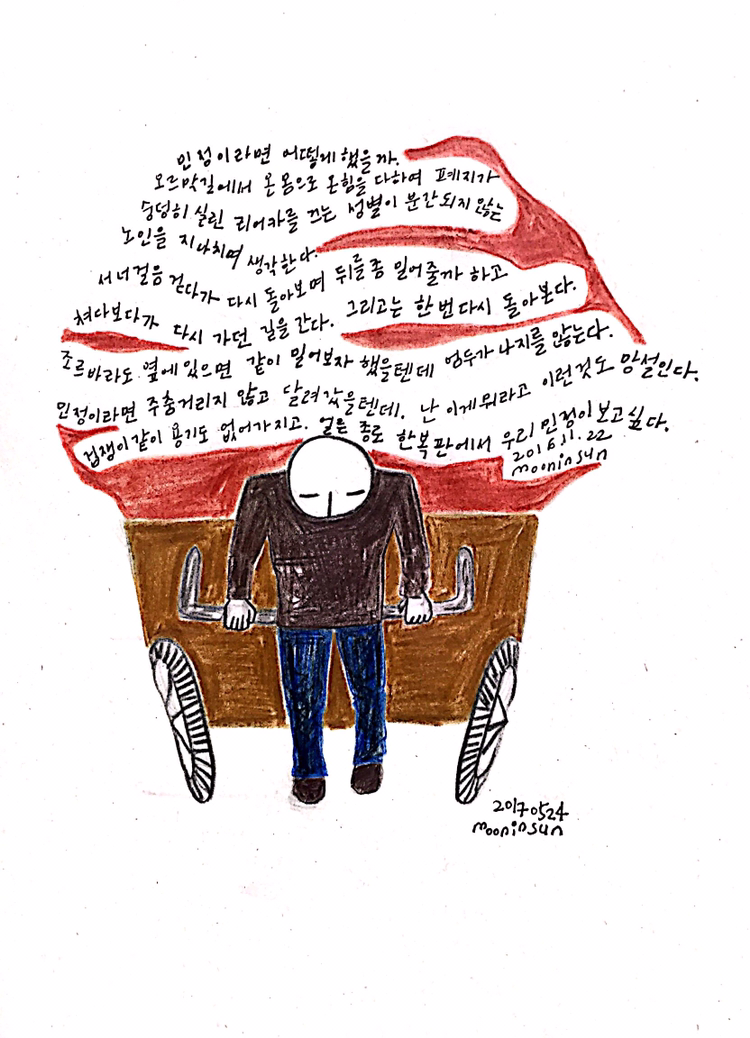 인정이라면 어떻게 했을까.
오르막길에서 온 몸으로 온힘을 다하여 폐지가
숭덩히 실린 리어카를 끄는 성별이 분간되지 않는
노인을 지나치며 생각한다.
서너걸음 걷다가 다시 돌아보며 뒤를 좀 밀어줄까 하고
쳐다보다가 다시 가던 길을 간다. 그리고는 한번 다시 돌아본다.
조르바라도 옆에 있으면 같이 밀어보자 했을텐데 엄두가 나지를 않는다.
인정이라면 주춤거리지 않고 달려갔을텐데. 난 이게 뭐라고 이런것도 망설인다.
겁쟁이 같이 용기도 없어가지고. 얼른 종로 한복판에서 우리 인정이 보고싶다.
2016.11.22
mooninsun
20170524
mooninsun